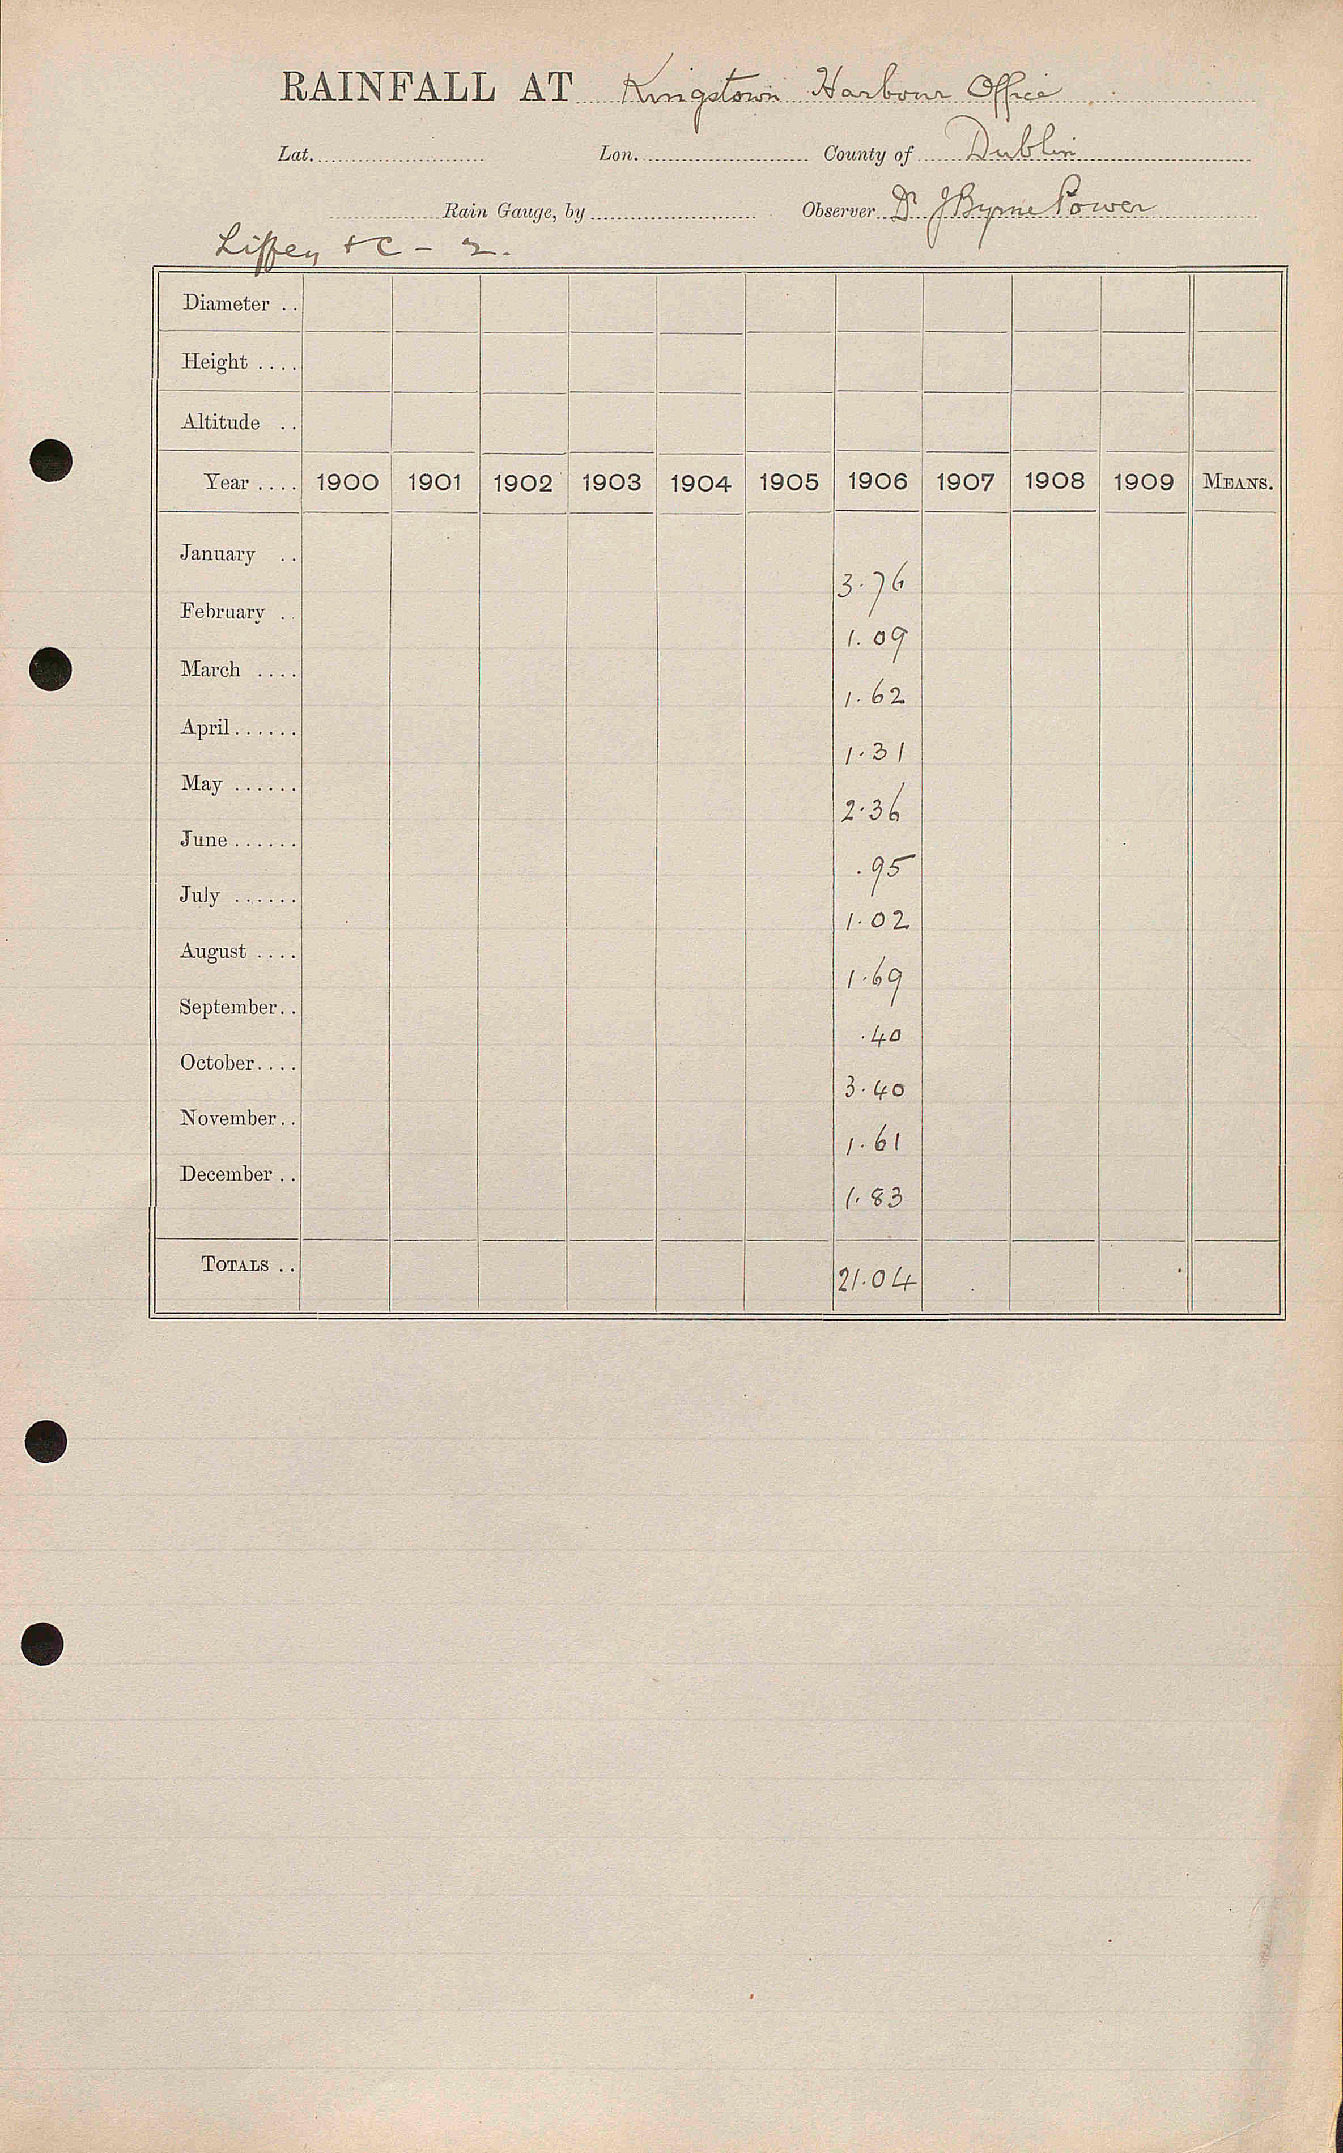 RAINFALL AT Kingstown Harbour Office
Lat. Lon. County of Dublin
Rain Gauge, by Observer Dr J Byrne Power
Liffey & C - 2.
Diameter ..
Height ....
Altitude ..
Year .... 1900 1901 1902 1903 1904 1905 1906 1907 1908 1909 MEANS.
January .. 3.76
February .. 1.09
March .... 1.62
April ...... 1.31
May ...... 2.36
June ...... .95
July ...... 1.02
August .... 1.69
September .. .40
October .... 3.40
November .. 1.61
December .. 1.83
TOTALS .. 21.04